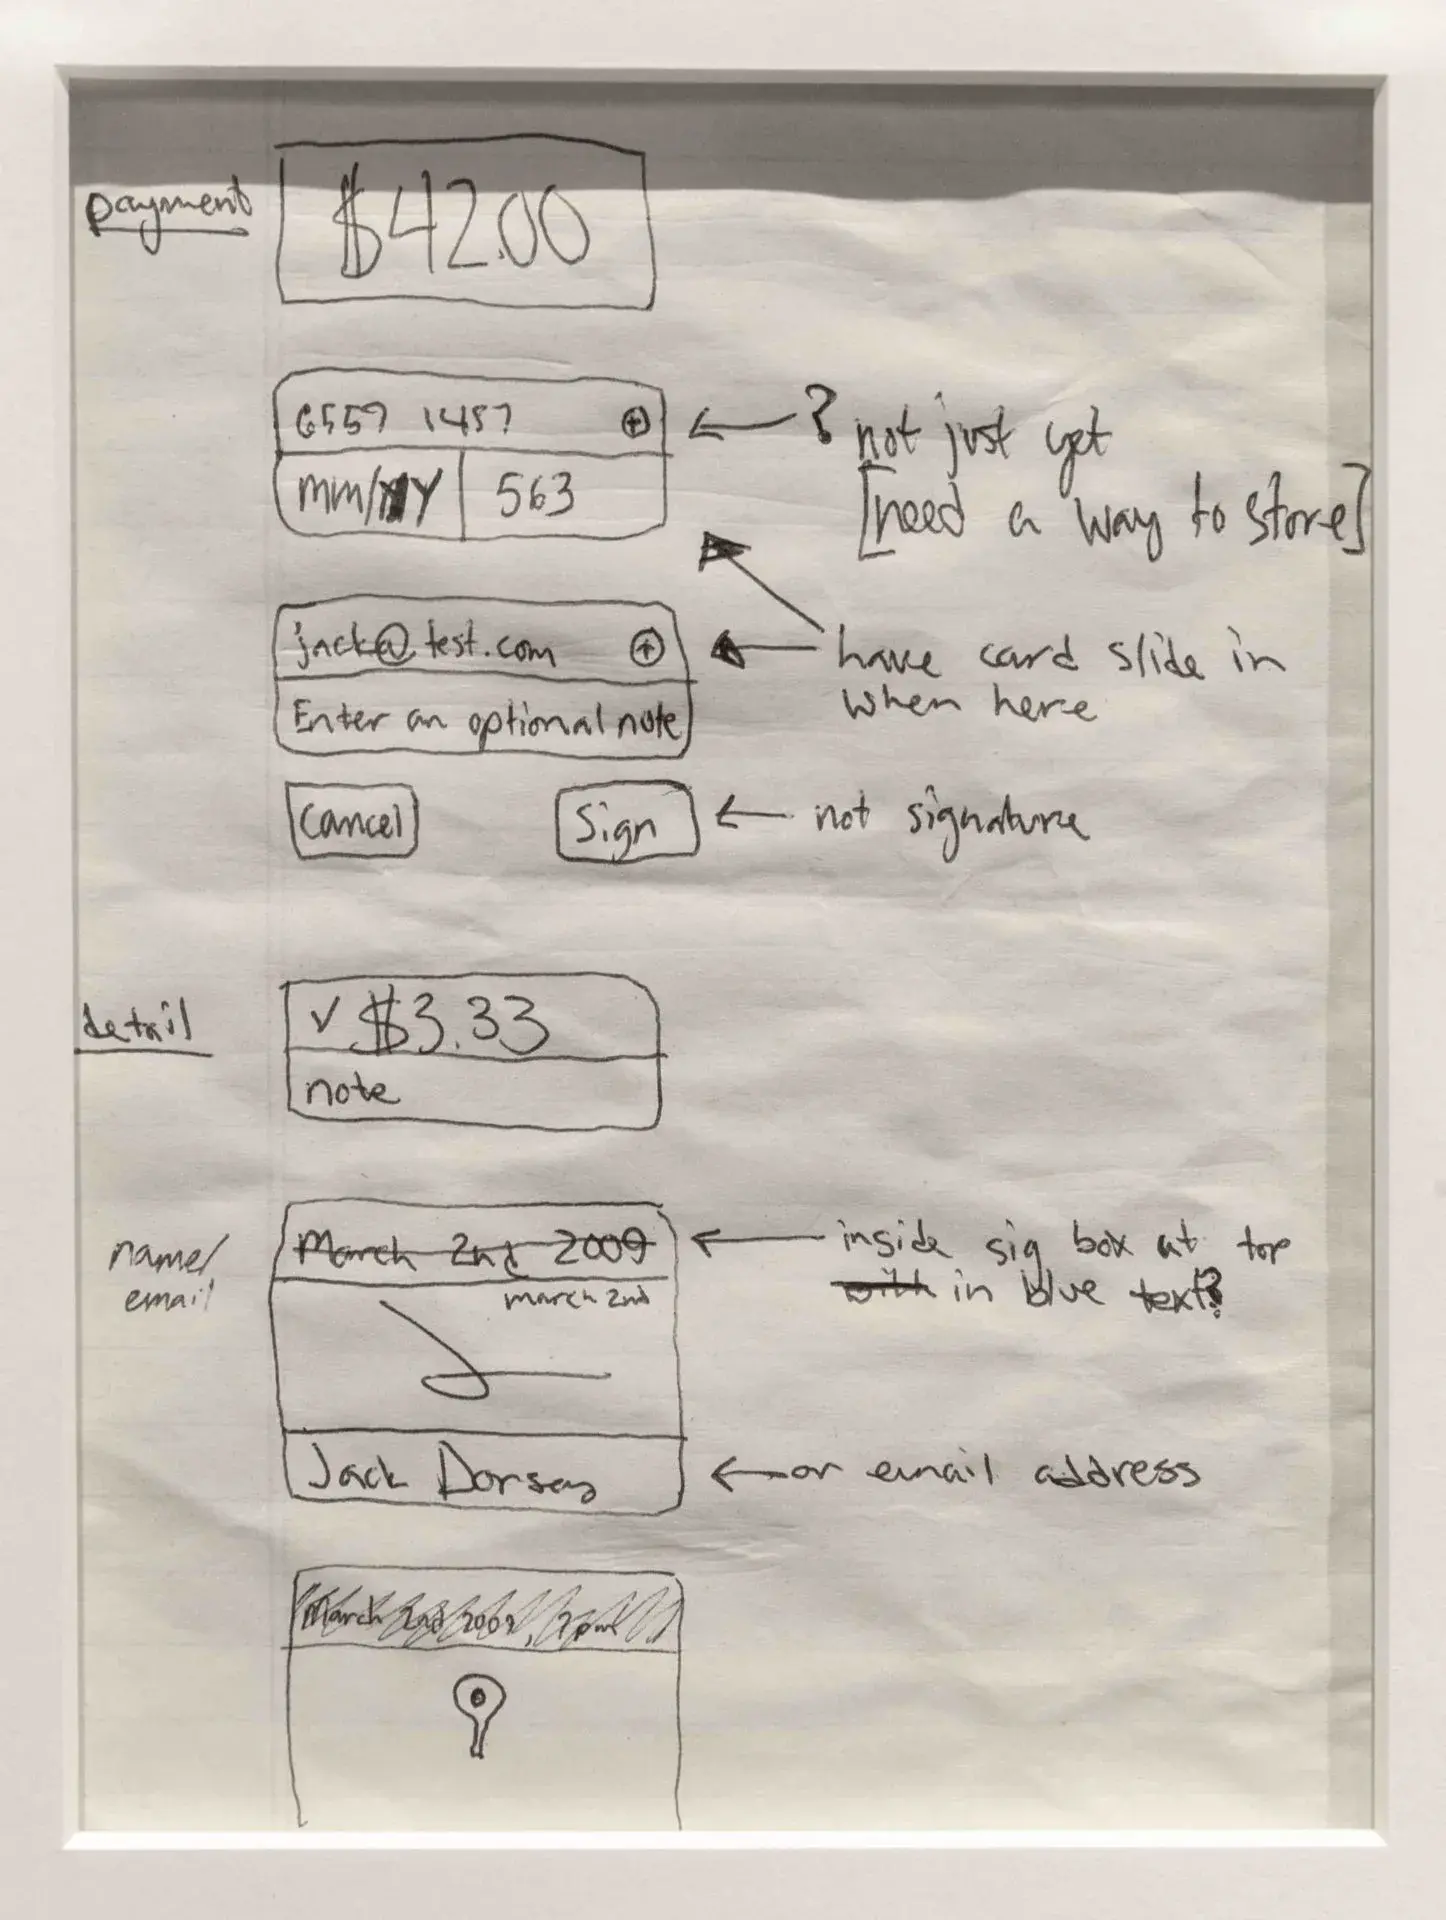 payment
$42.00
6557 1457 +
← ? not just yet
mm/YY 563
[need a way to store]
jack@test.com +
← have card slide in
when here
Enter an optional note
Cancel
Sign
← not signature
detail
✓ $3.33
note
name/
email
March 2nd 2009
← inside sig box at top
with in blue text?
march 2nd
Jack Dorsey
← or email address
March 2nd 2009,